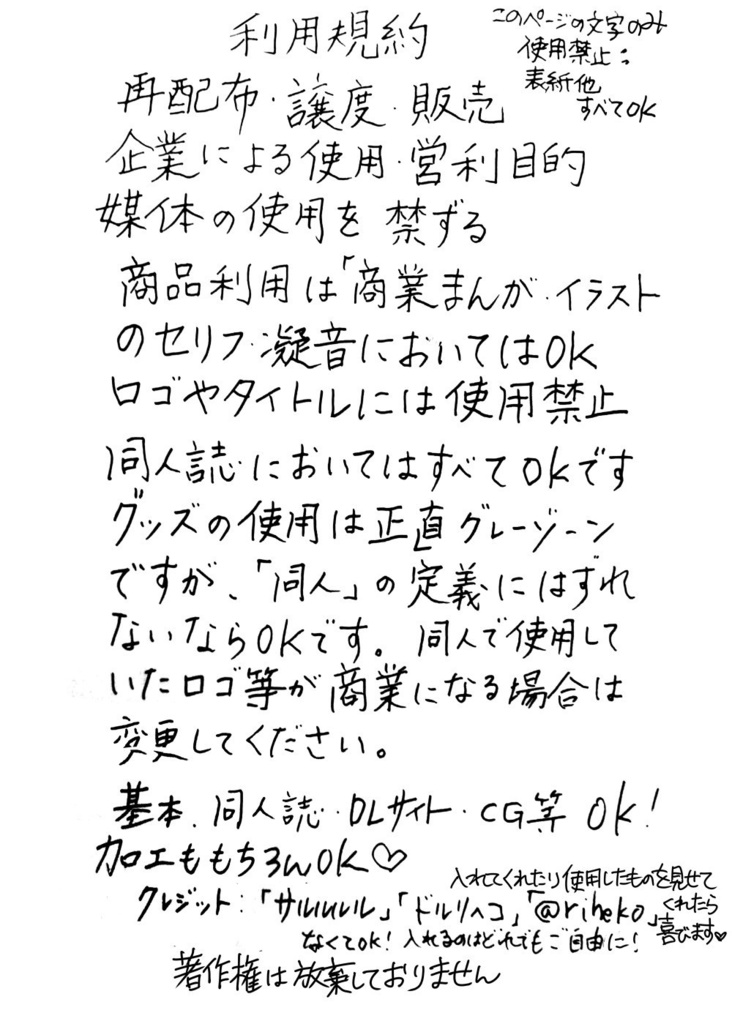 利用規約
このページの文字のみ
使用禁止:
表紙他
すべてOK
再配布・譲度・販売
企業による使用・営利目的
媒体の使用を禁ずる
商品利用は「商業まんが・イラスト
のセリフ・凝音においてはOK
ロゴやタイトルには使用禁止
同人誌においてはすべてOKです
グッズの使用は正直グレーゾーン
ですが、「同人」の定義にはずれ
ないならOKです。同人で使用して
いたロゴ等が商業になる場合は
変更してください。
基本、同人誌・DLサイト・CG等 OK!
加工ももちろんOK♡
クレジット:「サルルルル」「ドルリヘコ」「@riheko」
入れてくれたり使用したものを見せて
くれたら
喜びます♥
なくてOK! 入れるのはどれでもご自由に!
著作権は放棄しておりません